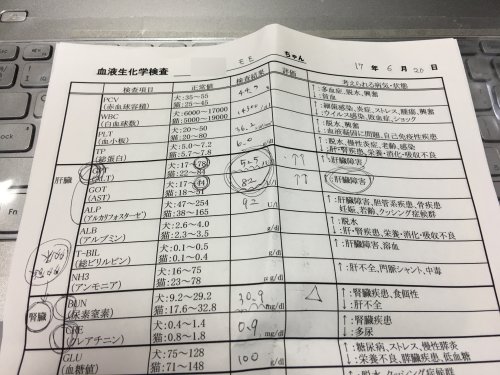 モモ ちゃん 17 年 6 月 20 日
血液生化学検査
検査項目 正常値 検査結果 評価 考えられる病気・状態
PCV 犬:35~55 ↑:多血症、脱水、興奮
(赤血球容積) 猫:25~45 ↓:貧血
WBC 犬:6000~17000 ↑:細菌感染、炎症、ストレス、腫瘍、興奮
(白血球数) 猫:5000~19000 ↓:ウイルス感染、敗血症、ショック
PLT 犬:20~50 36.2 ↑:脱水、興奮
(血小板) 猫:20~80 ↓:血液凝固に問題、自己免疫性疾患
TP 犬:5.0~7.2 6.0 ↑:脱水、慢性炎症、老齢、感染
(総蛋白) 猫:5.7~7.8 ↓:肝・腎疾患、栄養・消化・吸収不良
肝臓 GPT 犬:17~78 525 ↑↑ ↑:肝臓障害
(ALT) 猫:22~84
GOT 犬:17~44 82 ↑↑ ↑:肝臓障害
(AST) 猫:18~51
ALP 犬:47~254 92 U/l ↑:肝臓障害、胆管系疾患、骨疾患
(アルカリフォスターゼ) 猫:38~165 妊娠、若齢、クッシング症候群
ALB 犬:2.6~4.0 g/dl ↑:脱水
(アルブミン) 猫:2.3~3.5 ↓:肝・腎疾患、栄養・消化・吸収不良
T-BIL 犬:0.1~0.5 ↑:肝臓障害、溶血
(総ビリルビン) 猫:0.1~0.4
NH3 犬:16~75 μg/dl ↑:肝不全、門脈シャント、中毒
(アンモニア) 猫:23~78
腎臓 BUN 犬:9.2~29.2 30.9 △ ↑:腎臓疾患、食餌性
(尿素窒素) 猫:17.6~32.8 ↓:肝不全
CRE 犬:0.4~1.4 0.9 ↑:腎臓疾患
(クレアチニン) 猫:0.8~1.8 ↓:多尿
GLU 犬:75~128 100 ↑:糖尿病、ストレス、慢性膵炎
(血糖値) 猫:71~148 ↓:栄養不良、膵臓疾患、低血糖